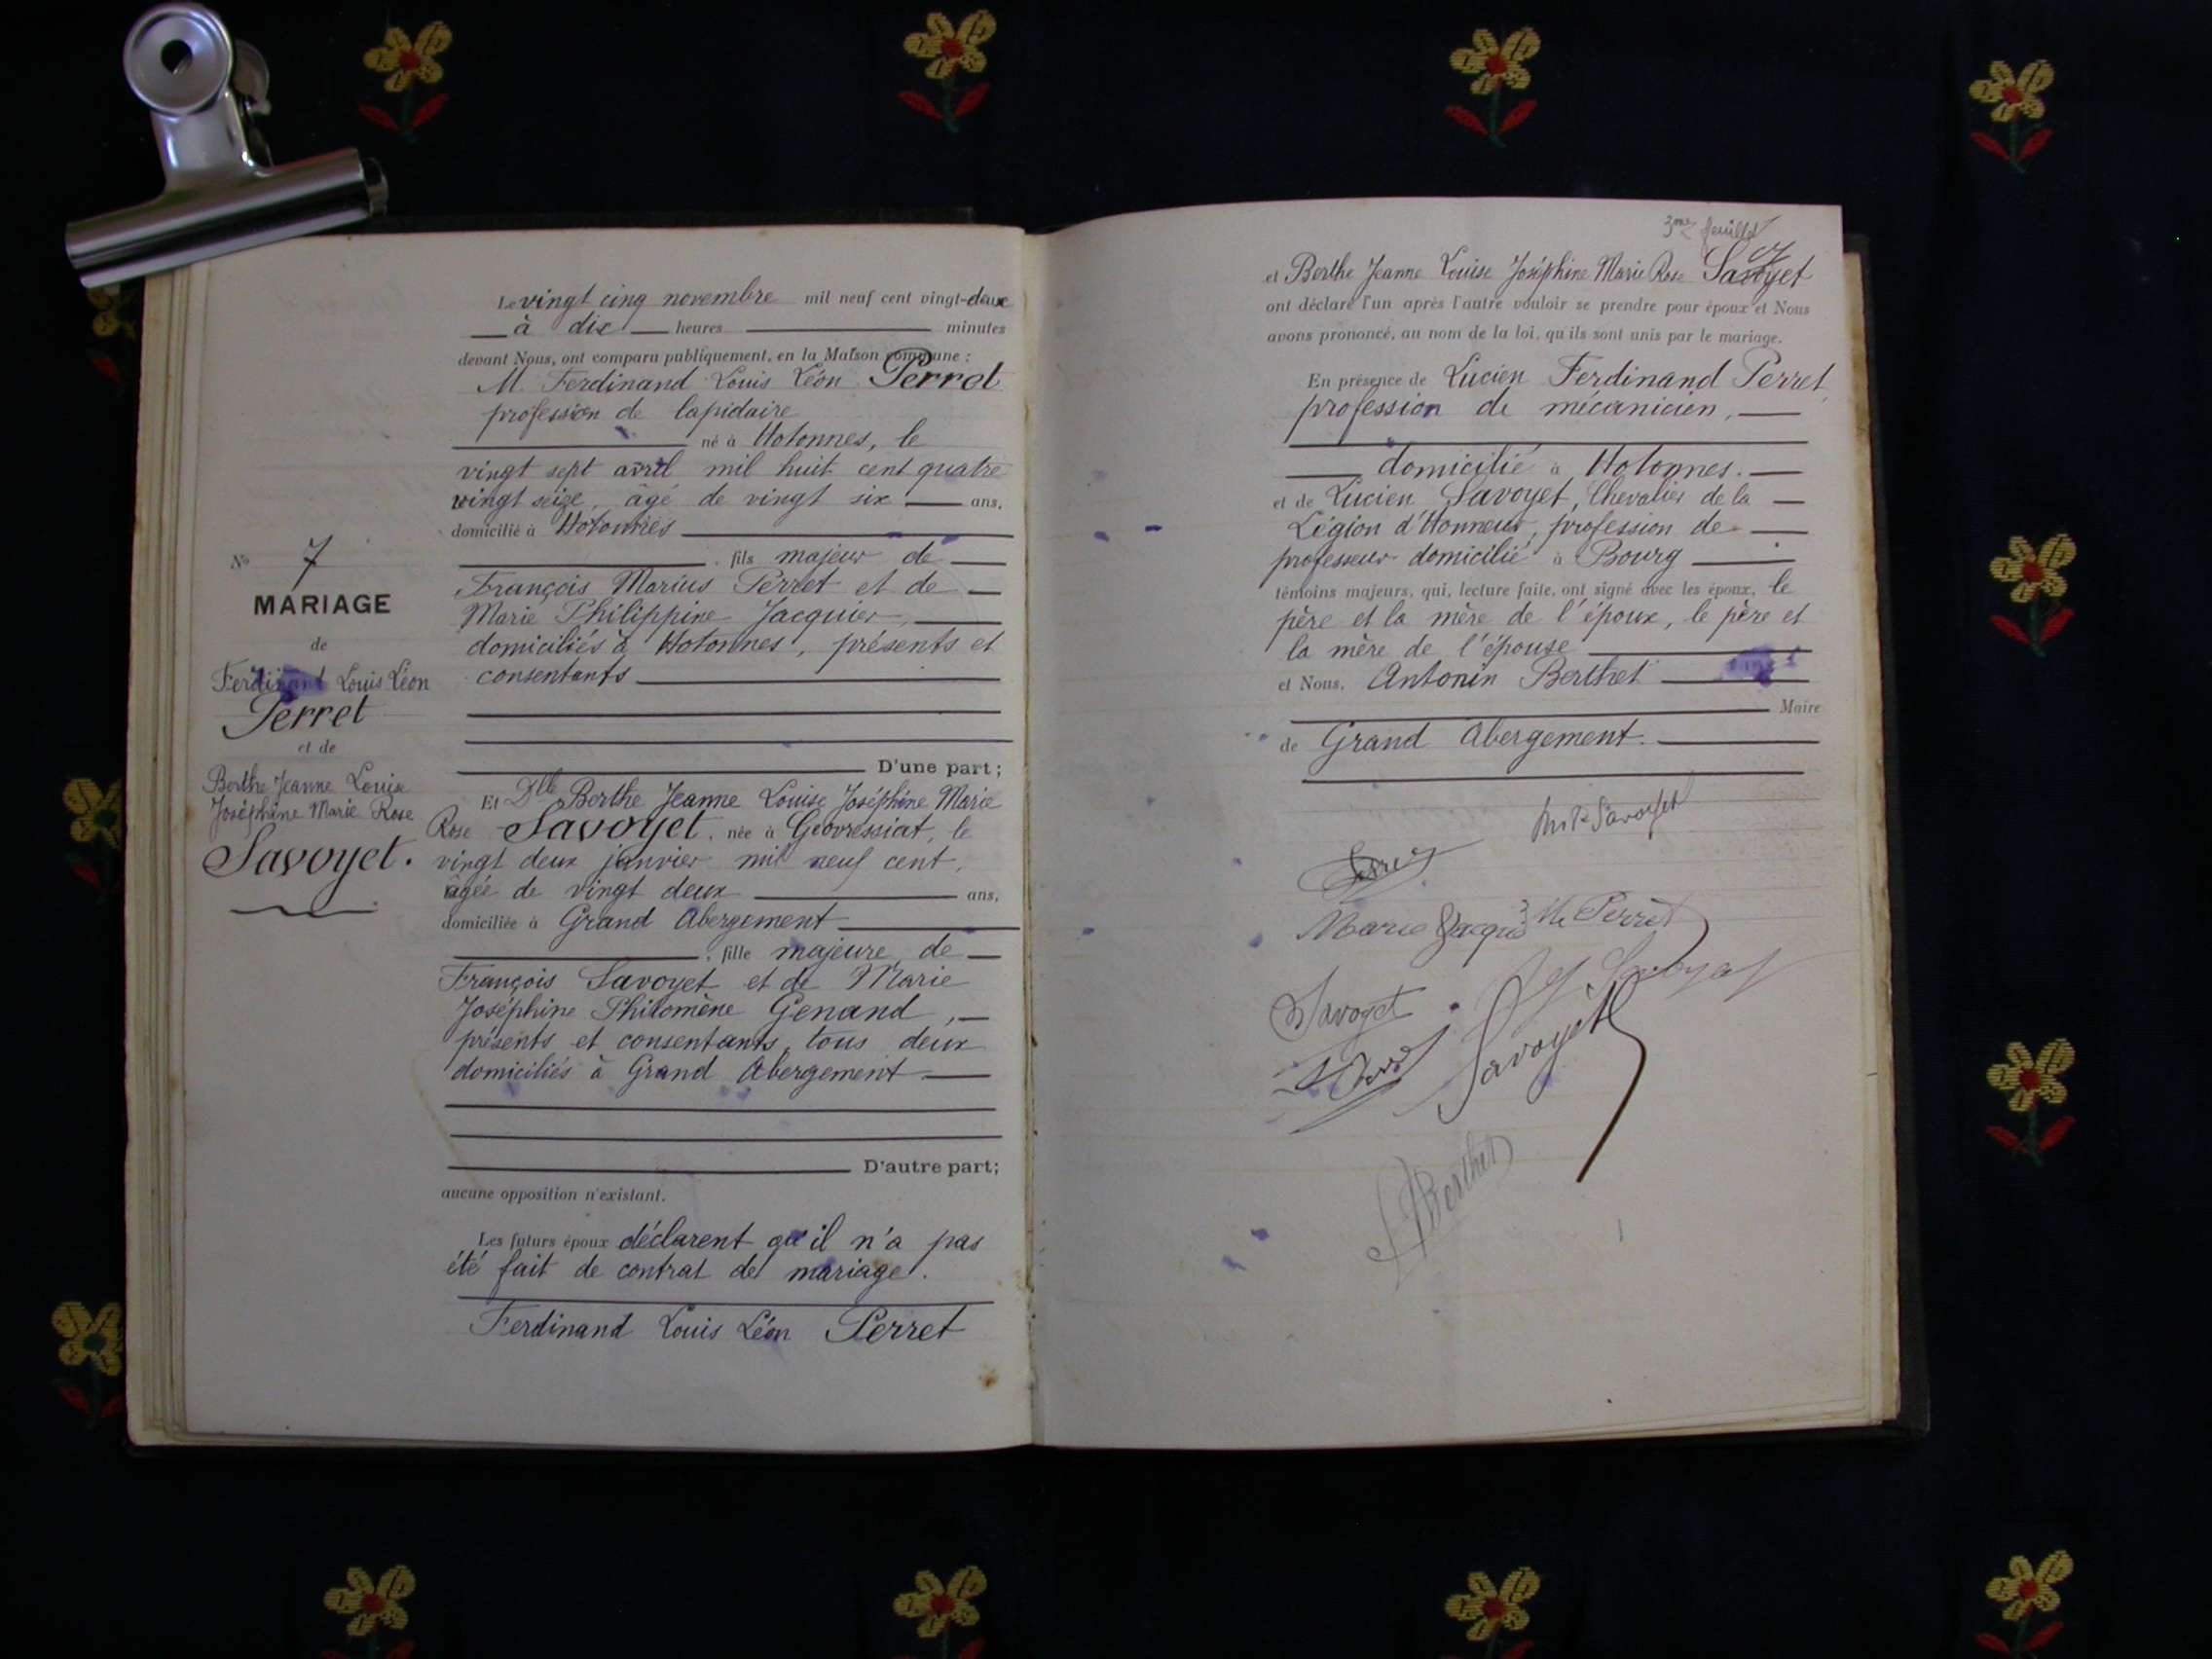 Le vingt cinq novembre mil neuf cent vingt-deux
à dix heures minutes
devant Nous, ont comparu publiquement, en la Maison commune :
M. Ferdinand Louis Léon Perret
profession de lapidaire
né à Hotonnes, le
vingt sept avril mil huit cent quatre
vingt seize, âgé de vingt six ans,
domicilié à Hotonnes
fils majeur de
François Marius Perret et de
Marie Philippine Jacquier,
domiciliés à Hotonnes, présents et
consentants
D'une part ;
No 7
MARIAGE
de
Ferdinand Louis Léon
Perret
et de
Berthe Jeanne Louise
Joséphine Marie Rose
Savoyet.
Et Dlle Berthe Jeanne Louise Joséphine Marie
Rose Savoyet, née à Géovressiat, le
vingt deux janvier mil neuf cent,
âgée de vingt deux ans,
domiciliée à Grand Abergement
, fille majeure de
François Savoyet et de Marie
Joséphine Philomène Genand,
présents et consentants, tous deux
domiciliés à Grand Abergement
D'autre part ;
aucune opposition n'existant.
Les futurs époux déclarent qu'il n'a pas
été fait de contrat de mariage.
Ferdinand Louis Léon Perret
3me feuillet
et Berthe Jeanne Louise Joséphine Marie Rose Savoyet
ont déclaré l'un après l'autre vouloir se prendre pour époux et Nous
avons prononcé, au nom de la loi, qu'ils sont unis par le mariage.
En présence de Lucien Ferdinand Perret,
profession de mécanicien,
domicilié à Hotonnes.
et de Lucien Savoyet, Chevalier de la
Légion d'Honneur, profession de
professeur domicilié à Bourg
témoins majeurs, qui, lecture faite, ont signé avec les époux, le
père et la mère de l'époux, le père et
la mère de l'épouse
et Nous, Antonin Berthet
Maire
de Grand Abergement.
Savoyet
Perret
Marie Perret
Savoyet
Savoyet
Savoyet
Berthet